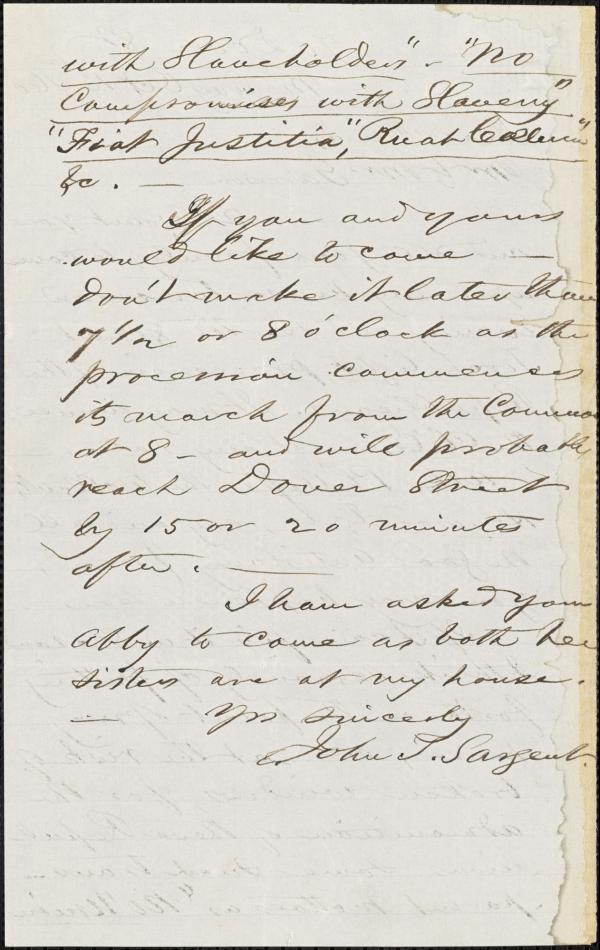 with Slaveholders" - "No
Compromises with Slavery"
"Fiat Justitia", Ruat Coelum"
&c. —
If you and yours
would like to come —
don't make it later than
7 1/2 or 8 o'clock as the
procession commences
its march from the Common
at 8 - and will probably
reach Dover Street
by 15 or 20 minutes
after. —
I have asked your
Abby to come as both her
sisters are at my house.
— Yrs sincerely
John T. Sargent.